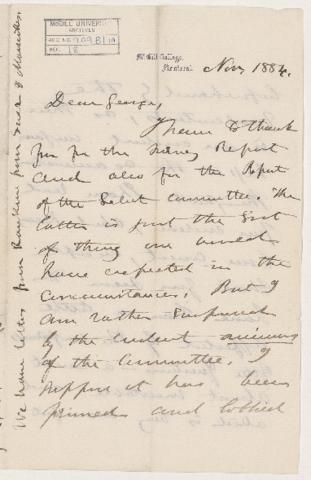 McGILL UNIVERSITY
ARCHIVES
ACC. NO. 909 B1
REF. 18
McGill College,
Montreal
Nov, 1884.
Dear George,
I have to thank
you for the Survey Report
and also for the Report
of the Select Committee. The
latter is just the sort
of thing one would
have expected in the
circumstances. But I
am rather surprised
by the evident animus
of the Committee. I
suppose it has been
primed and lobbied
We have letters from Rankine from